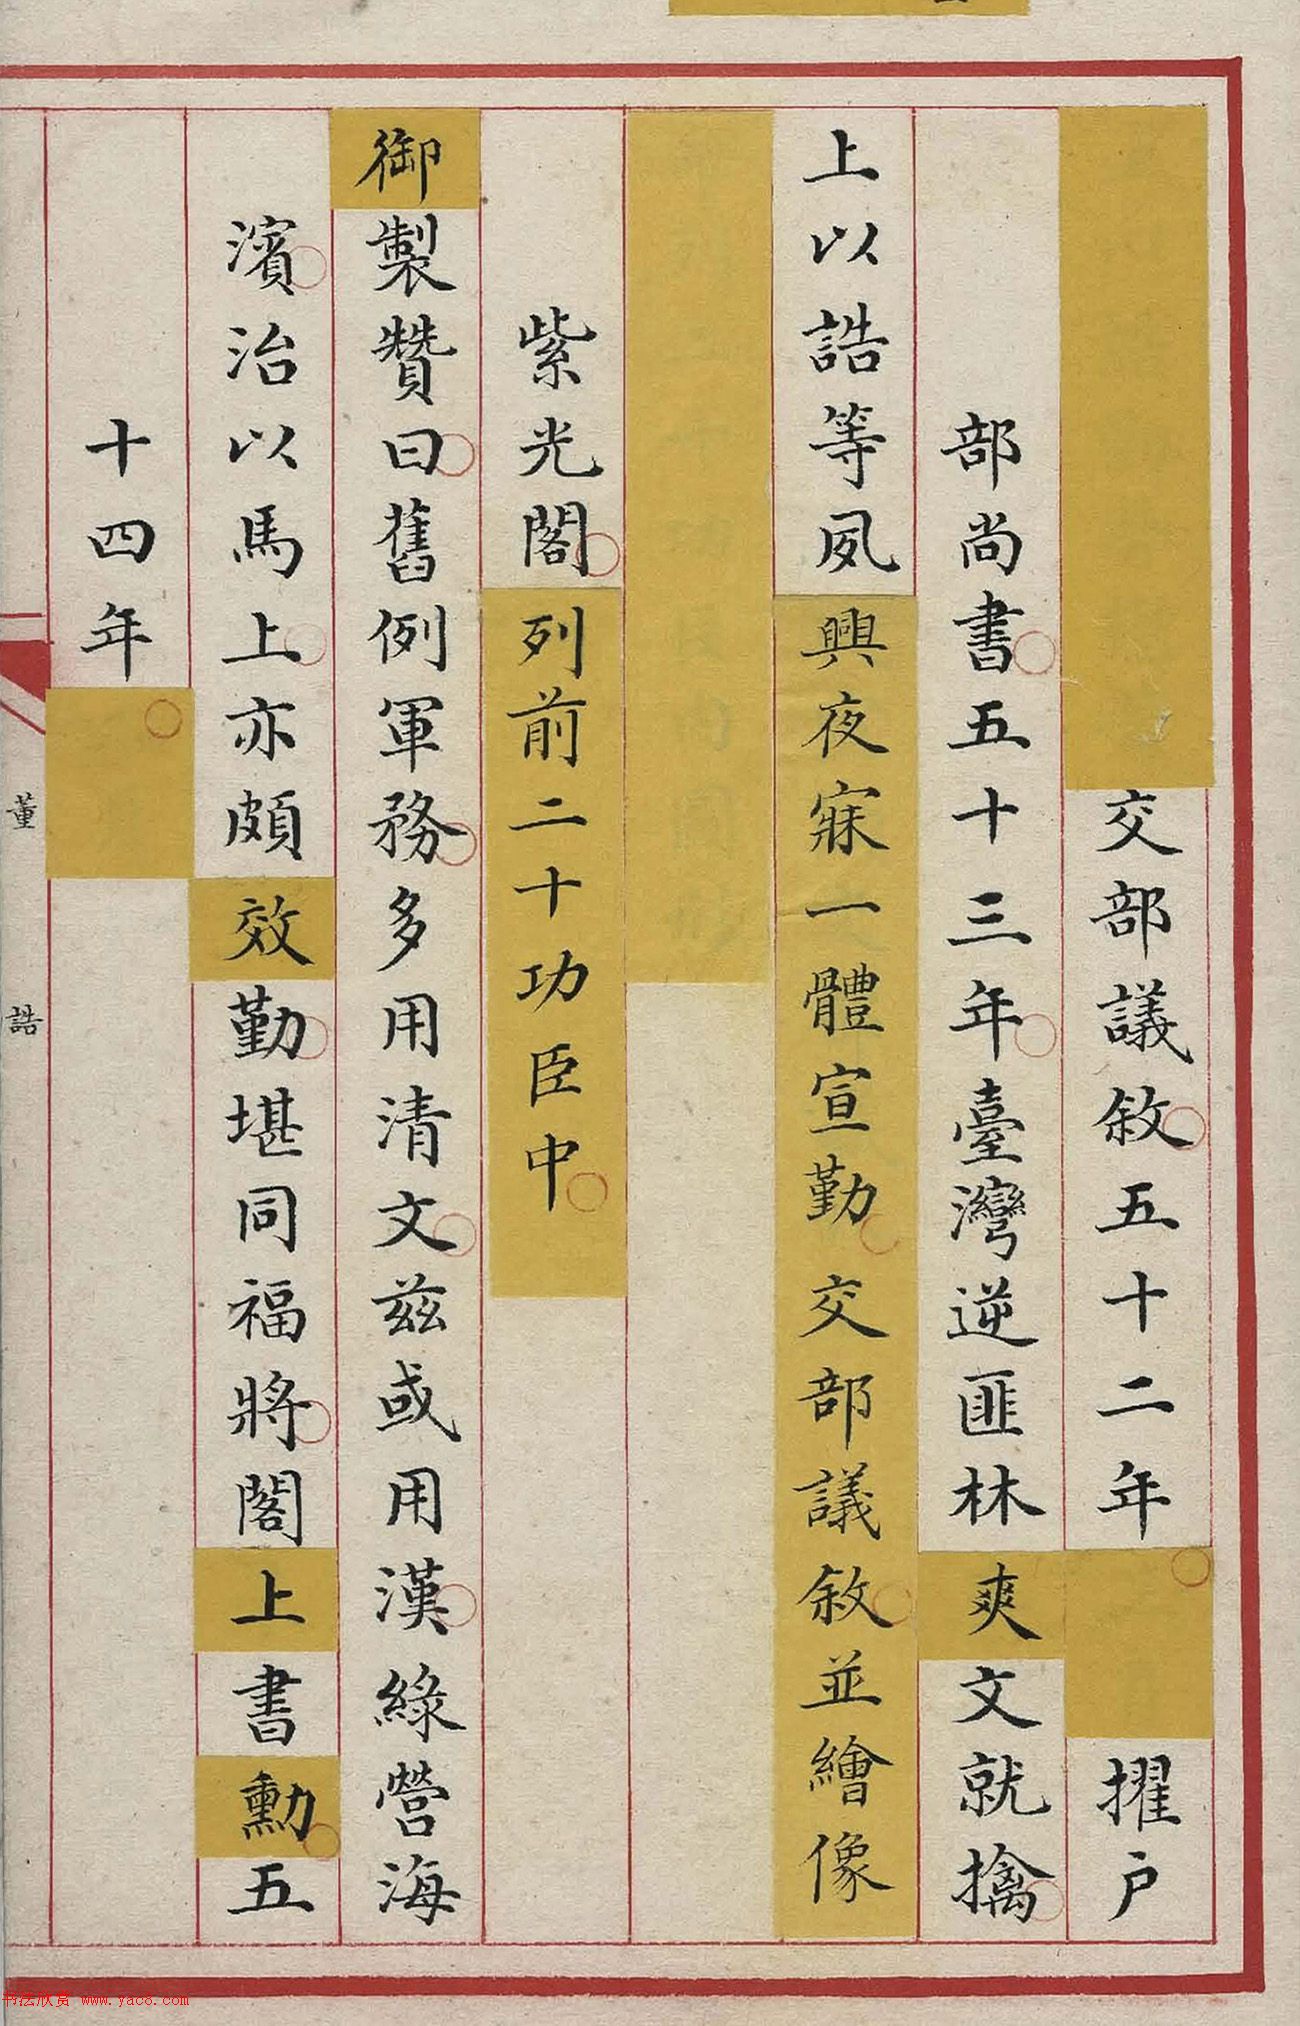 交部議敘五十二年擢户
部尚書五十三年臺灣逆匪林爽文就擒
上以誥等夙興夜寐一體宣勤交部議敘並繪像
紫光閣列前二十功臣中
御製贊曰舊例軍務多用清文兹或用漢綠營海
濱治以馬上亦頗效勤堪同福將閣上書勳五
十四年
董誥
书法欣赏 www.yac8.com